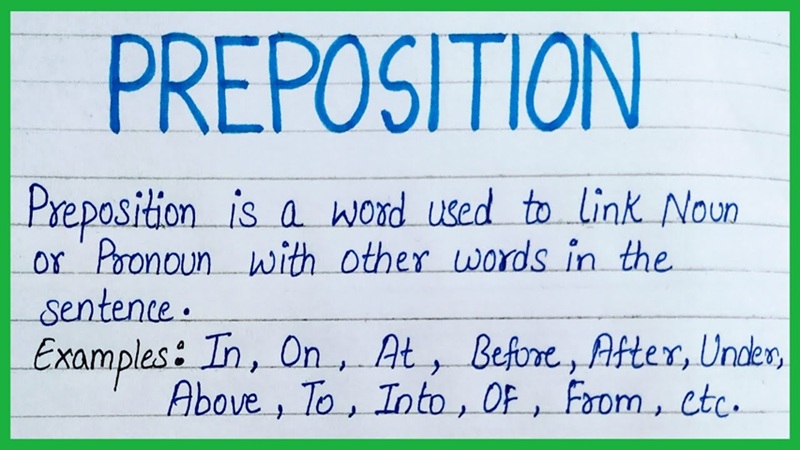 PREPOSITION
Preposition is a word used to link Noun
or Pronoun with other words in the
sentence.
Examples: In, On, At, Before, After, Under,
Above, To, Into, OF, From, etc.